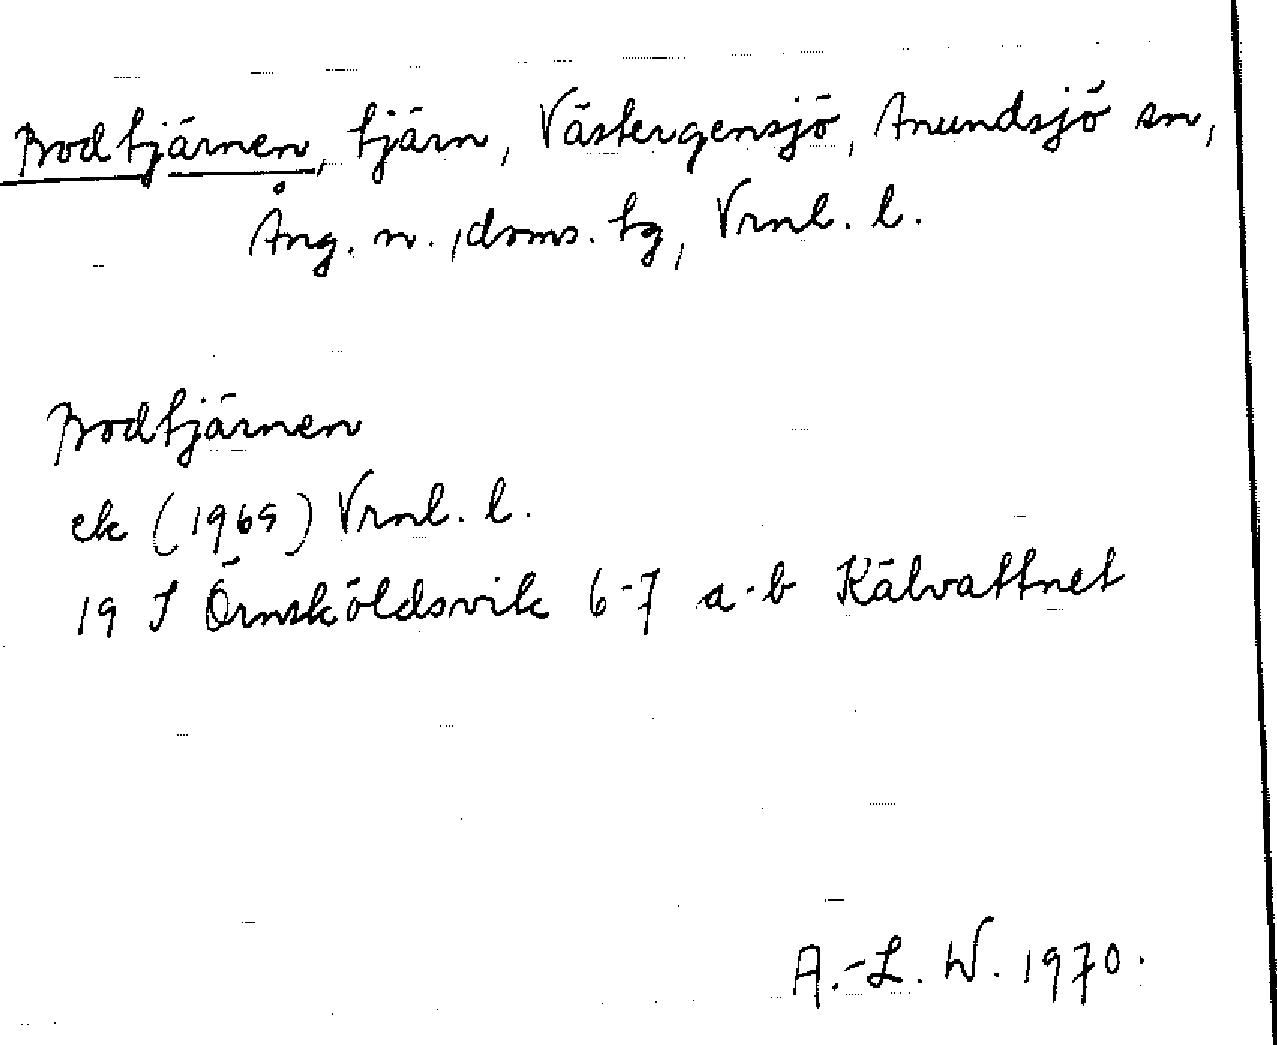 Bodtjärnen, tjärn, Västergensjö, Anundsjö sn,
Ång. n., doms. tg, Vrnl. l.
Bodtjärnen
ek (1969) Vrnl. l.
19 J Örnsköldsvik 6-7 a-b Kälvattnet
A.-L. W. 1970.